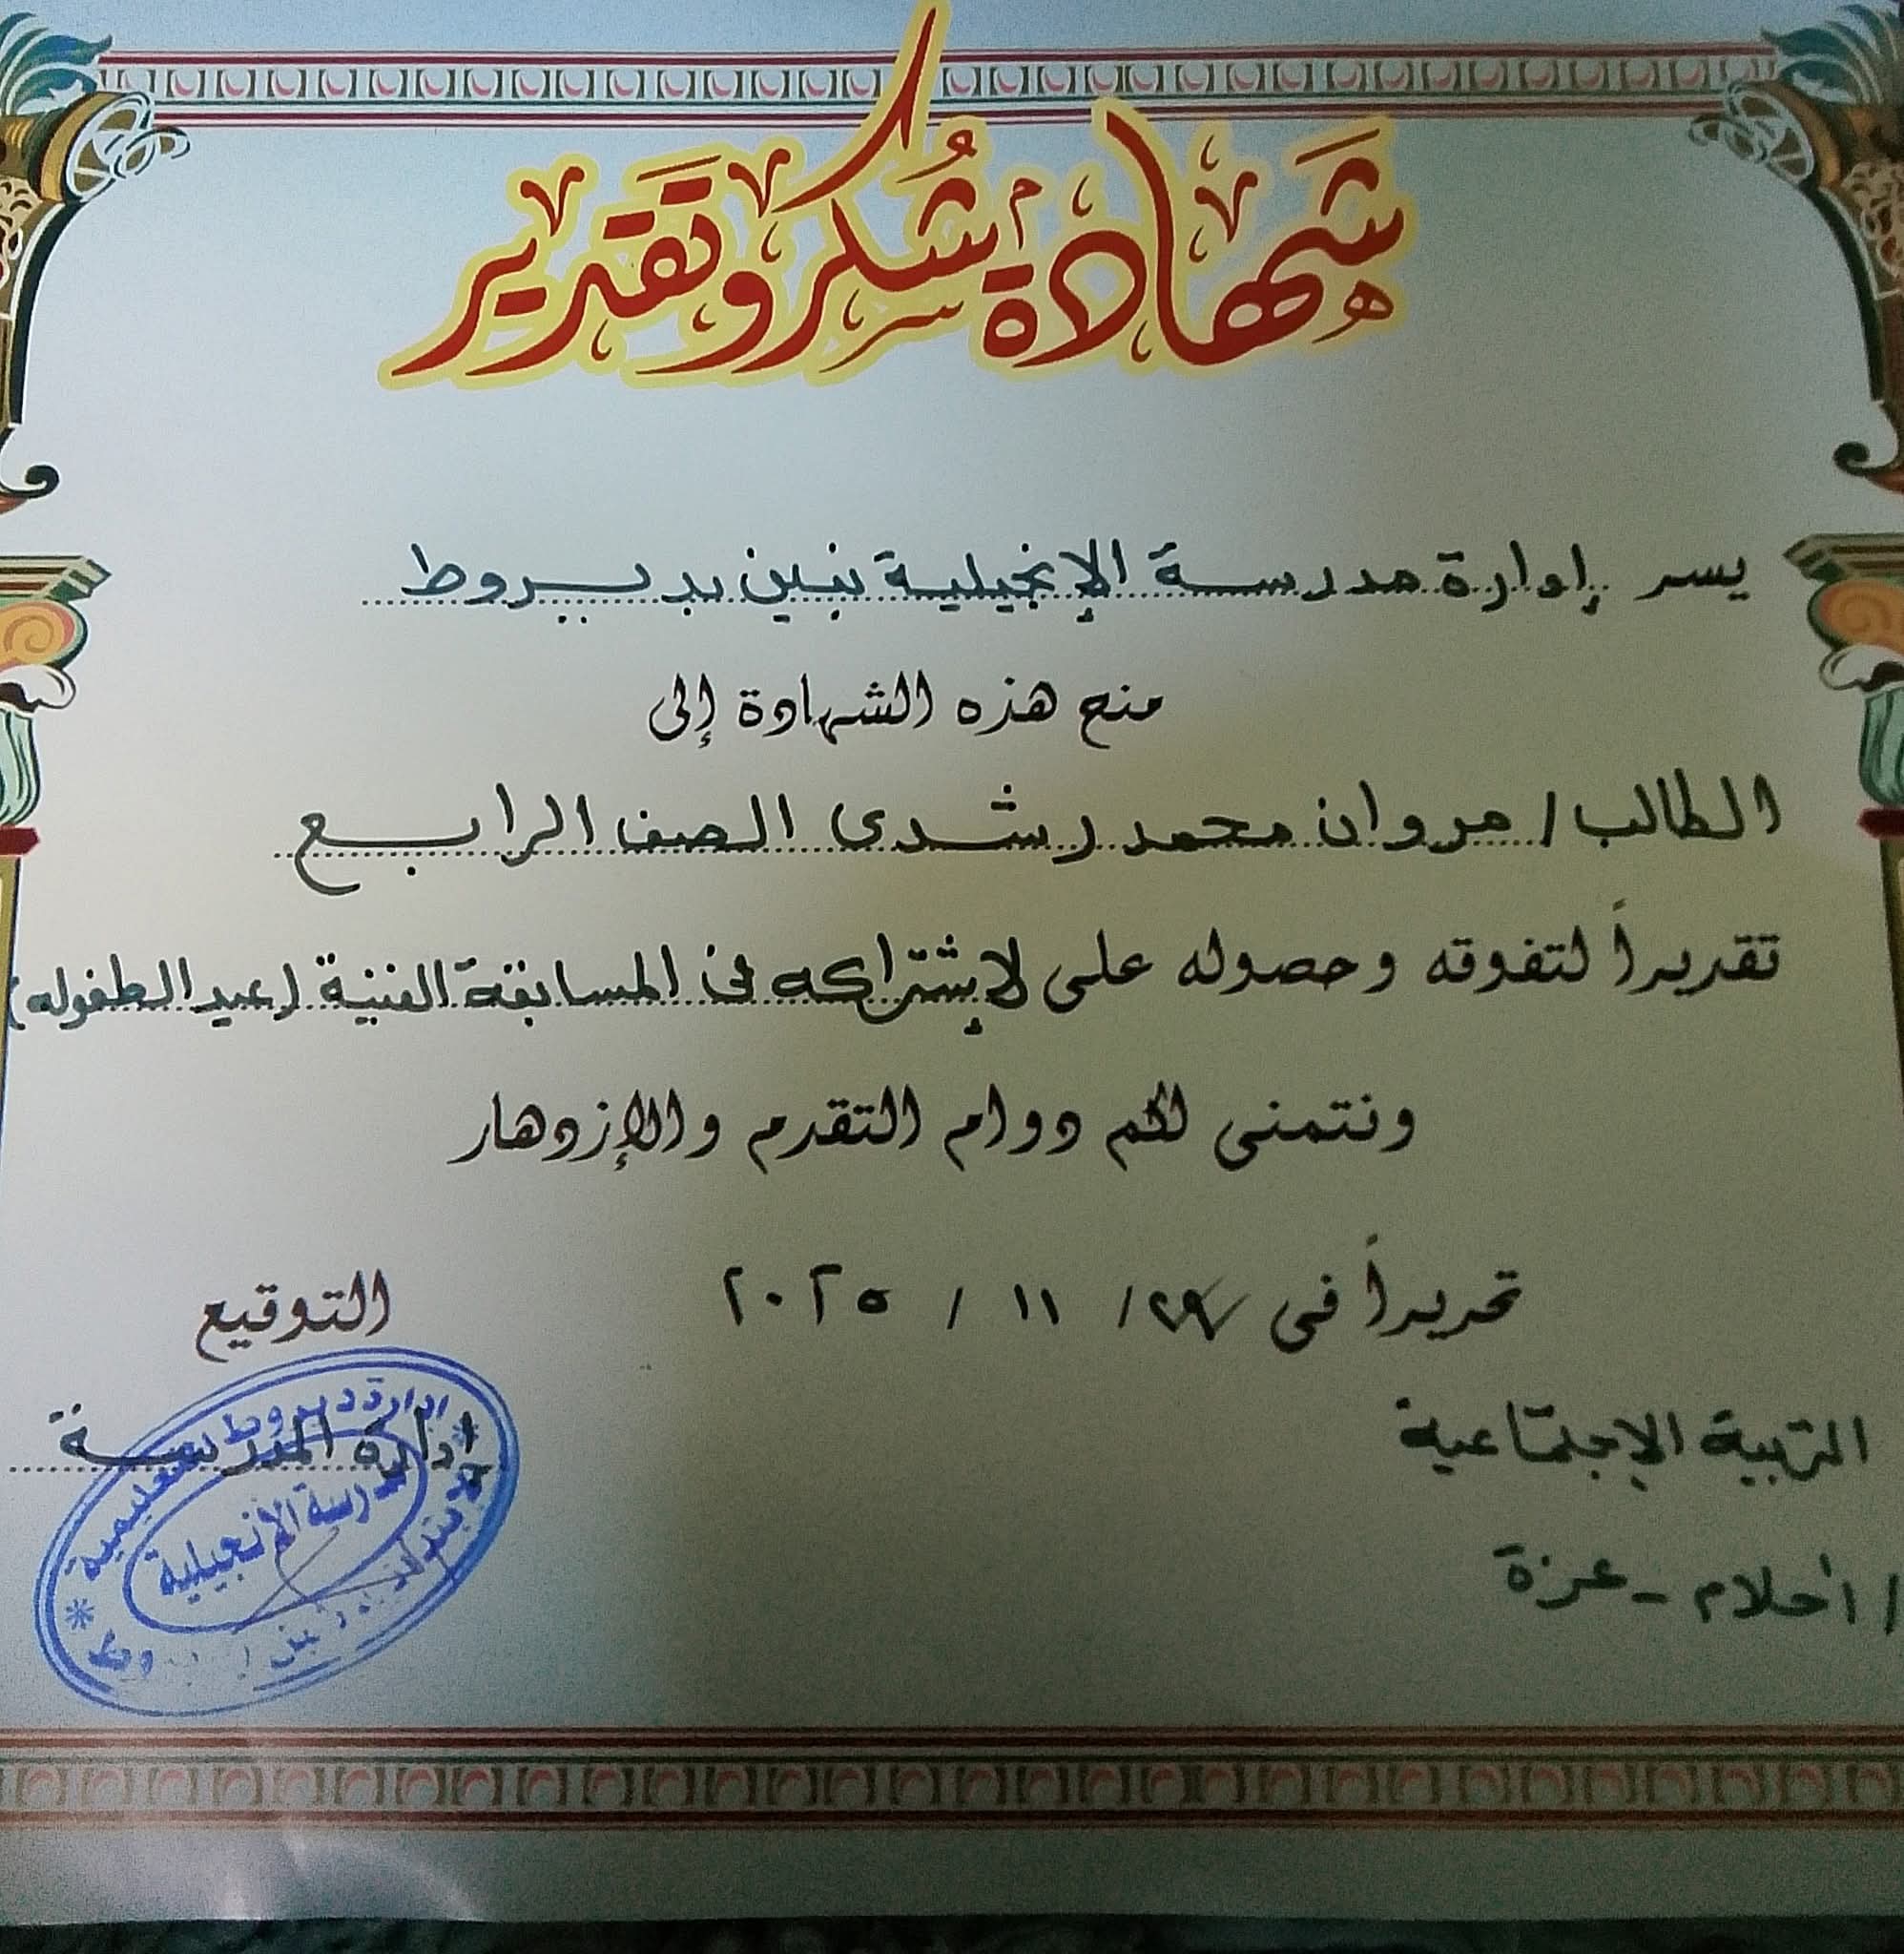 شهادة شكر وتقدير
يسر إدارة مدرسة الإنجيلية بنين بديروط
منح هذه الشهادة إلى
الطالب / مروان محمد رشدى الصف الرابع
تقديراً لتفوقه وحصوله على لإشتراكه فى المسابقة الفنية (عيد الطفوله)
ونتمنى لكم دوام التقدم والإزدهار
تحريراً فى / ١١ / ٢٠٢٥
التوقيع
التربية الإجتماعية
إدارة المدرسة
/ أحلام - عزة
إدارة ديروط التعليمية
مدرسة الإنجيلية